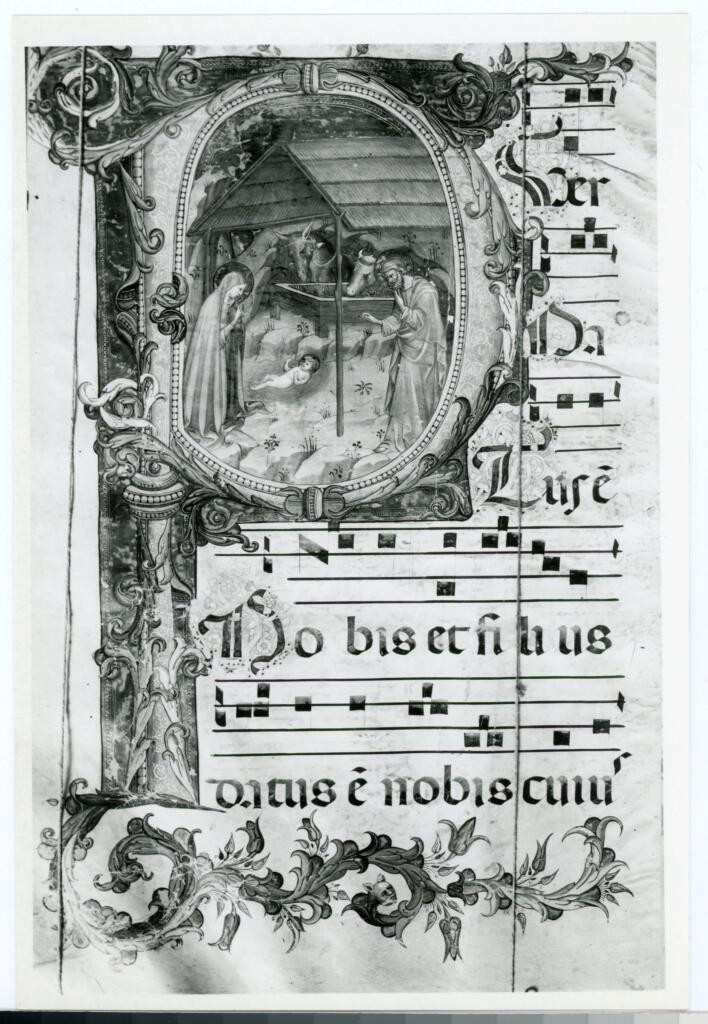 PUer
Na
Tus ē
No bis et fi li us
datus ē nobis cuius